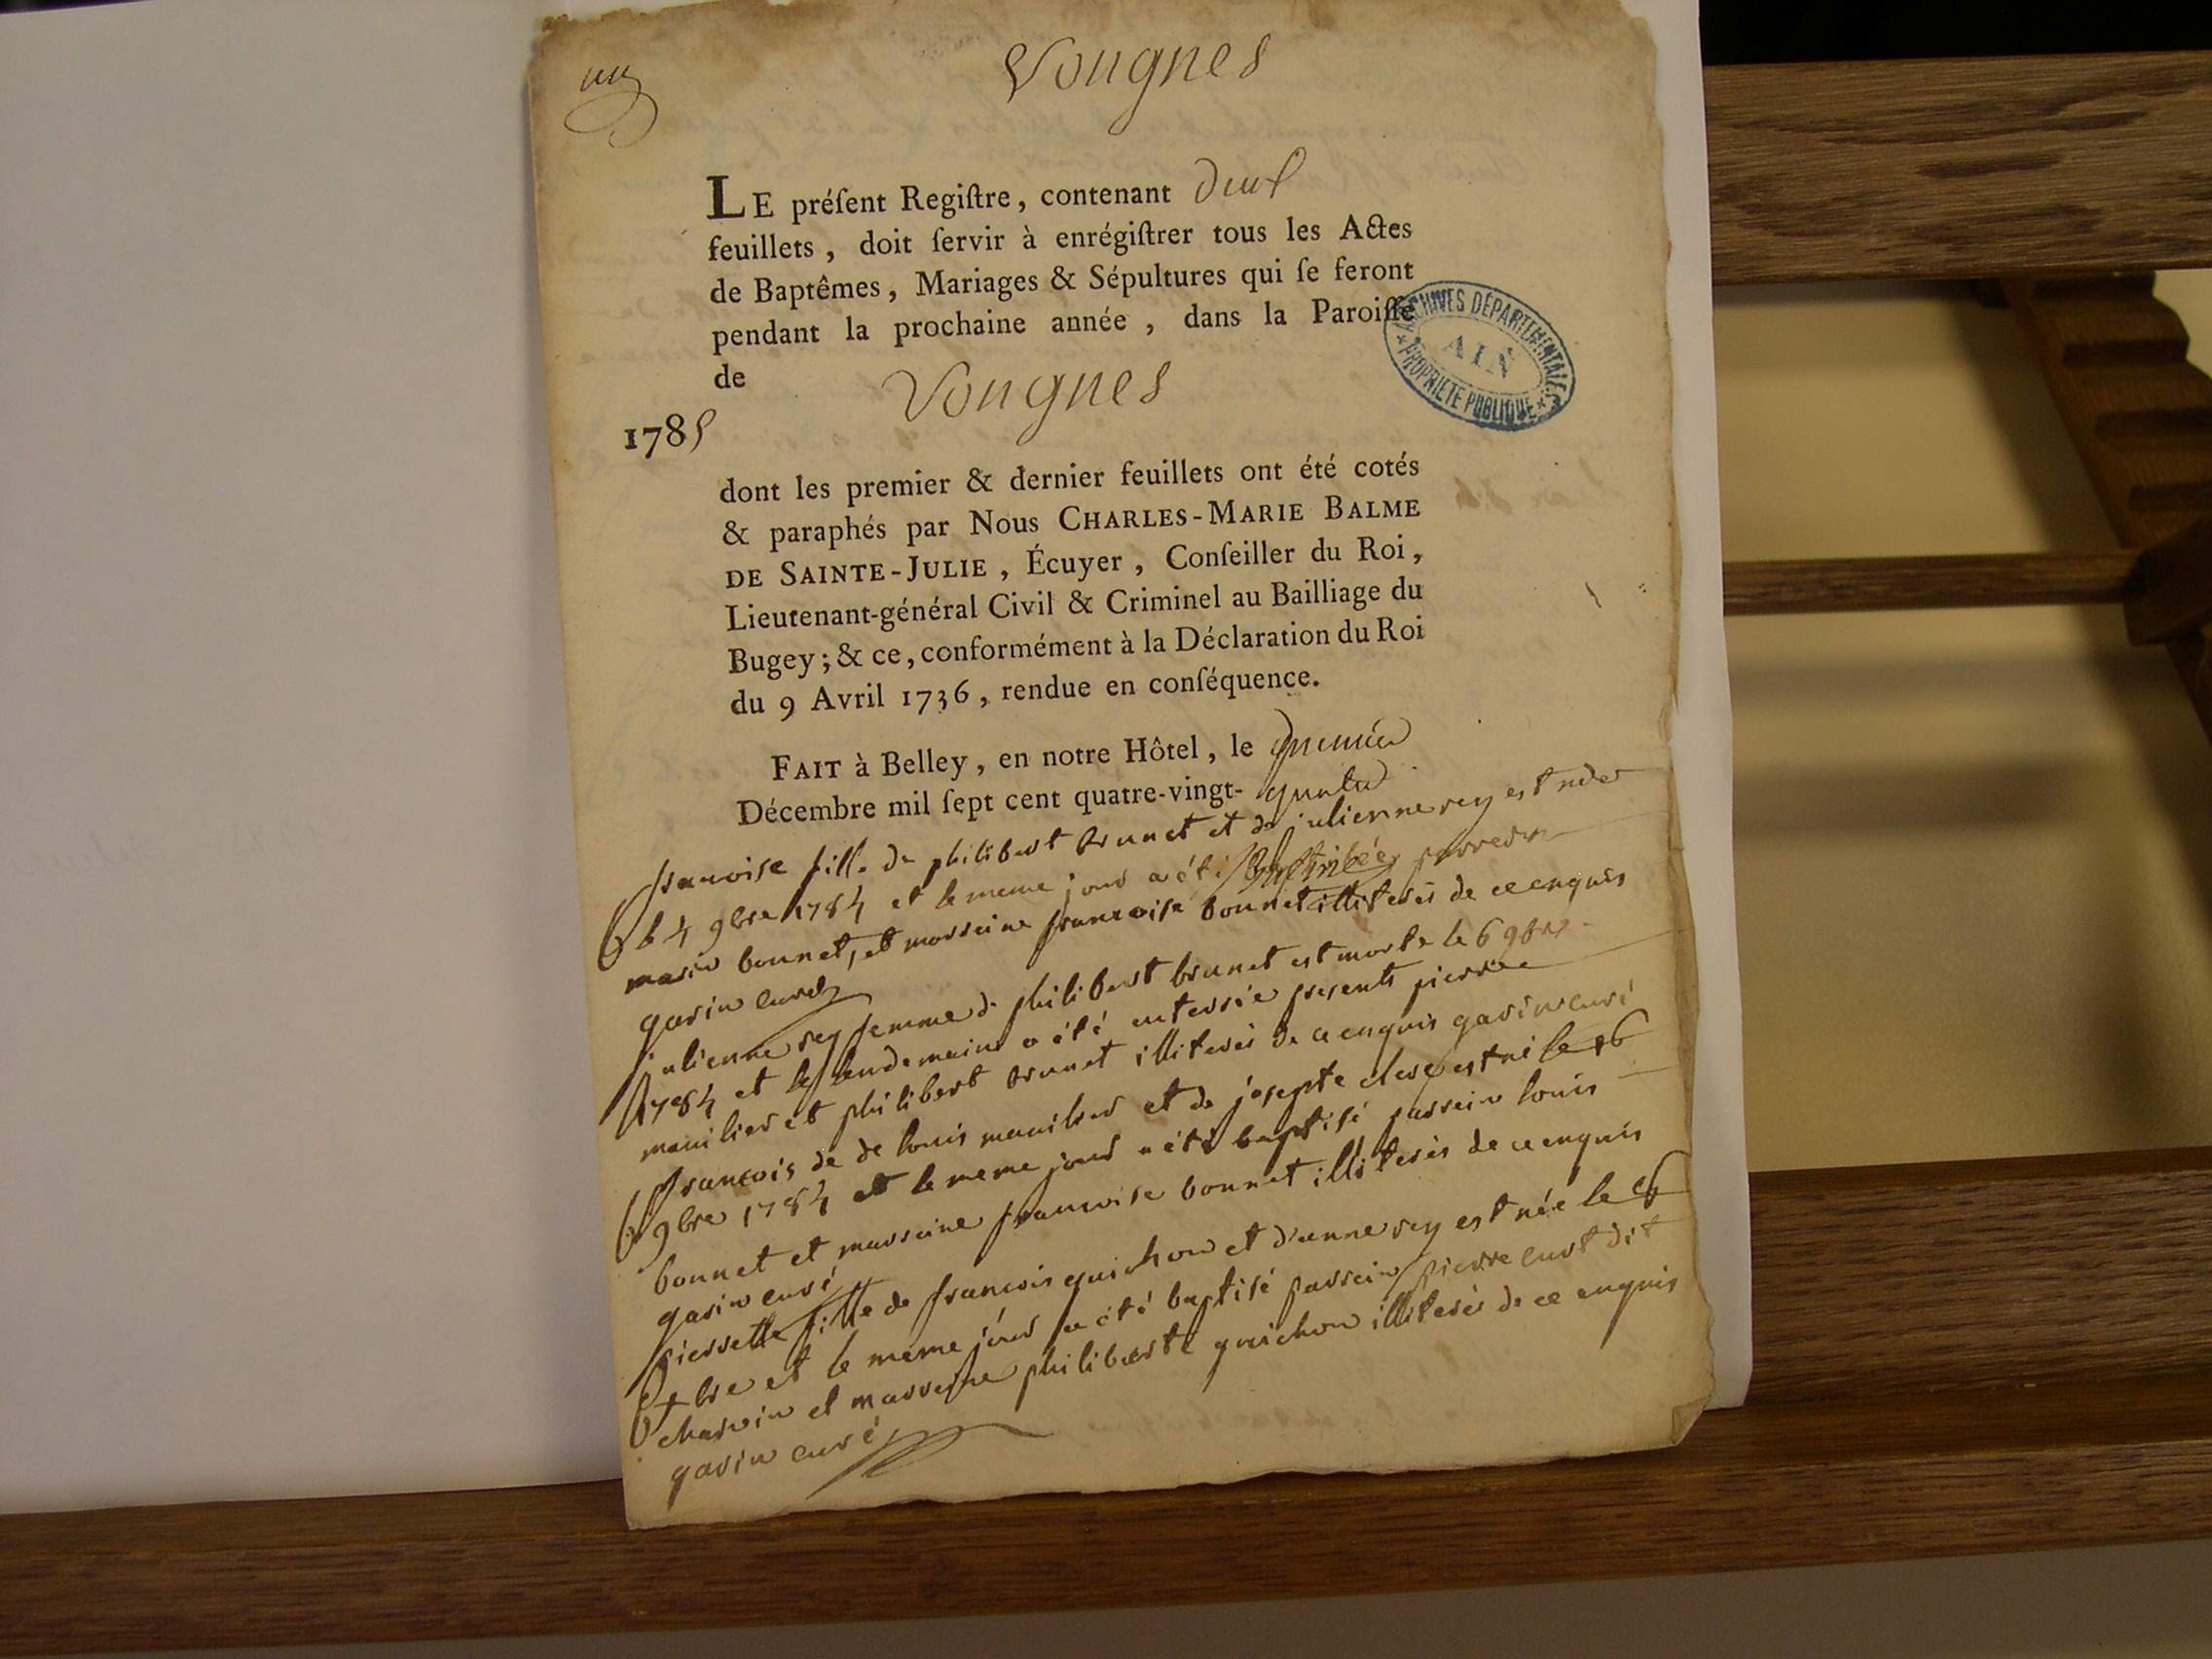 un
Vongnes
LE préſent Regiſtre, contenant deux
feuillets, doit ſervir à enrégiſtrer tous les Actes
de Baptêmes, Mariages & Sépultures qui ſe feront
pendant la prochaine année, dans la Paroiſſe
de Vongnes
ARCHIVES DÉPARTEMENTALES
AIN
PROPRIÉTÉ PUBLIQUE
1785
dont les premier & dernier feuillets ont été cotés
& paraphés par Nous CHARLES-MARIE BALME
DE SAINTE-JULIE, Écuyer, Conſeiller du Roi,
Lieutenant-général Civil & Criminel au Bailliage du
Bugey; & ce, conformément à la Déclaration du Roi
du 9 Avril 1736, rendue en conſéquence.
FAIT à Belley, en notre Hôtel, le premier
Décembre mil ſept cent quatre-vingt- quatre
francoise fille de philibert brunet et de julienne rey est née
le 4 9bre 1784 et le meme jour a été
bonnet, et marreine francoise bonnet illiterés de ce enquis
garin curé
julienne rey femme de philibert brunet est morte le 6 9bre
1784 et le lendemain a été enterrée presents pierre
manilier et philibert brunet illiterés de ce enquis garin curé
francois de de louis manilier et de josepte clerc est né le 16
9bre 1784 et le meme jour a été baptisé parrein louis
bonnet et marreine francoise bonnet illiterés de ce enquis
garin curé
pierrette fille de francois guichon et d'anne rey est née le
bre et le meme jour a été baptisé parrein pierre curt dit
charvin et marreine philiberte guichon illiterés de ce enquis
garin curé